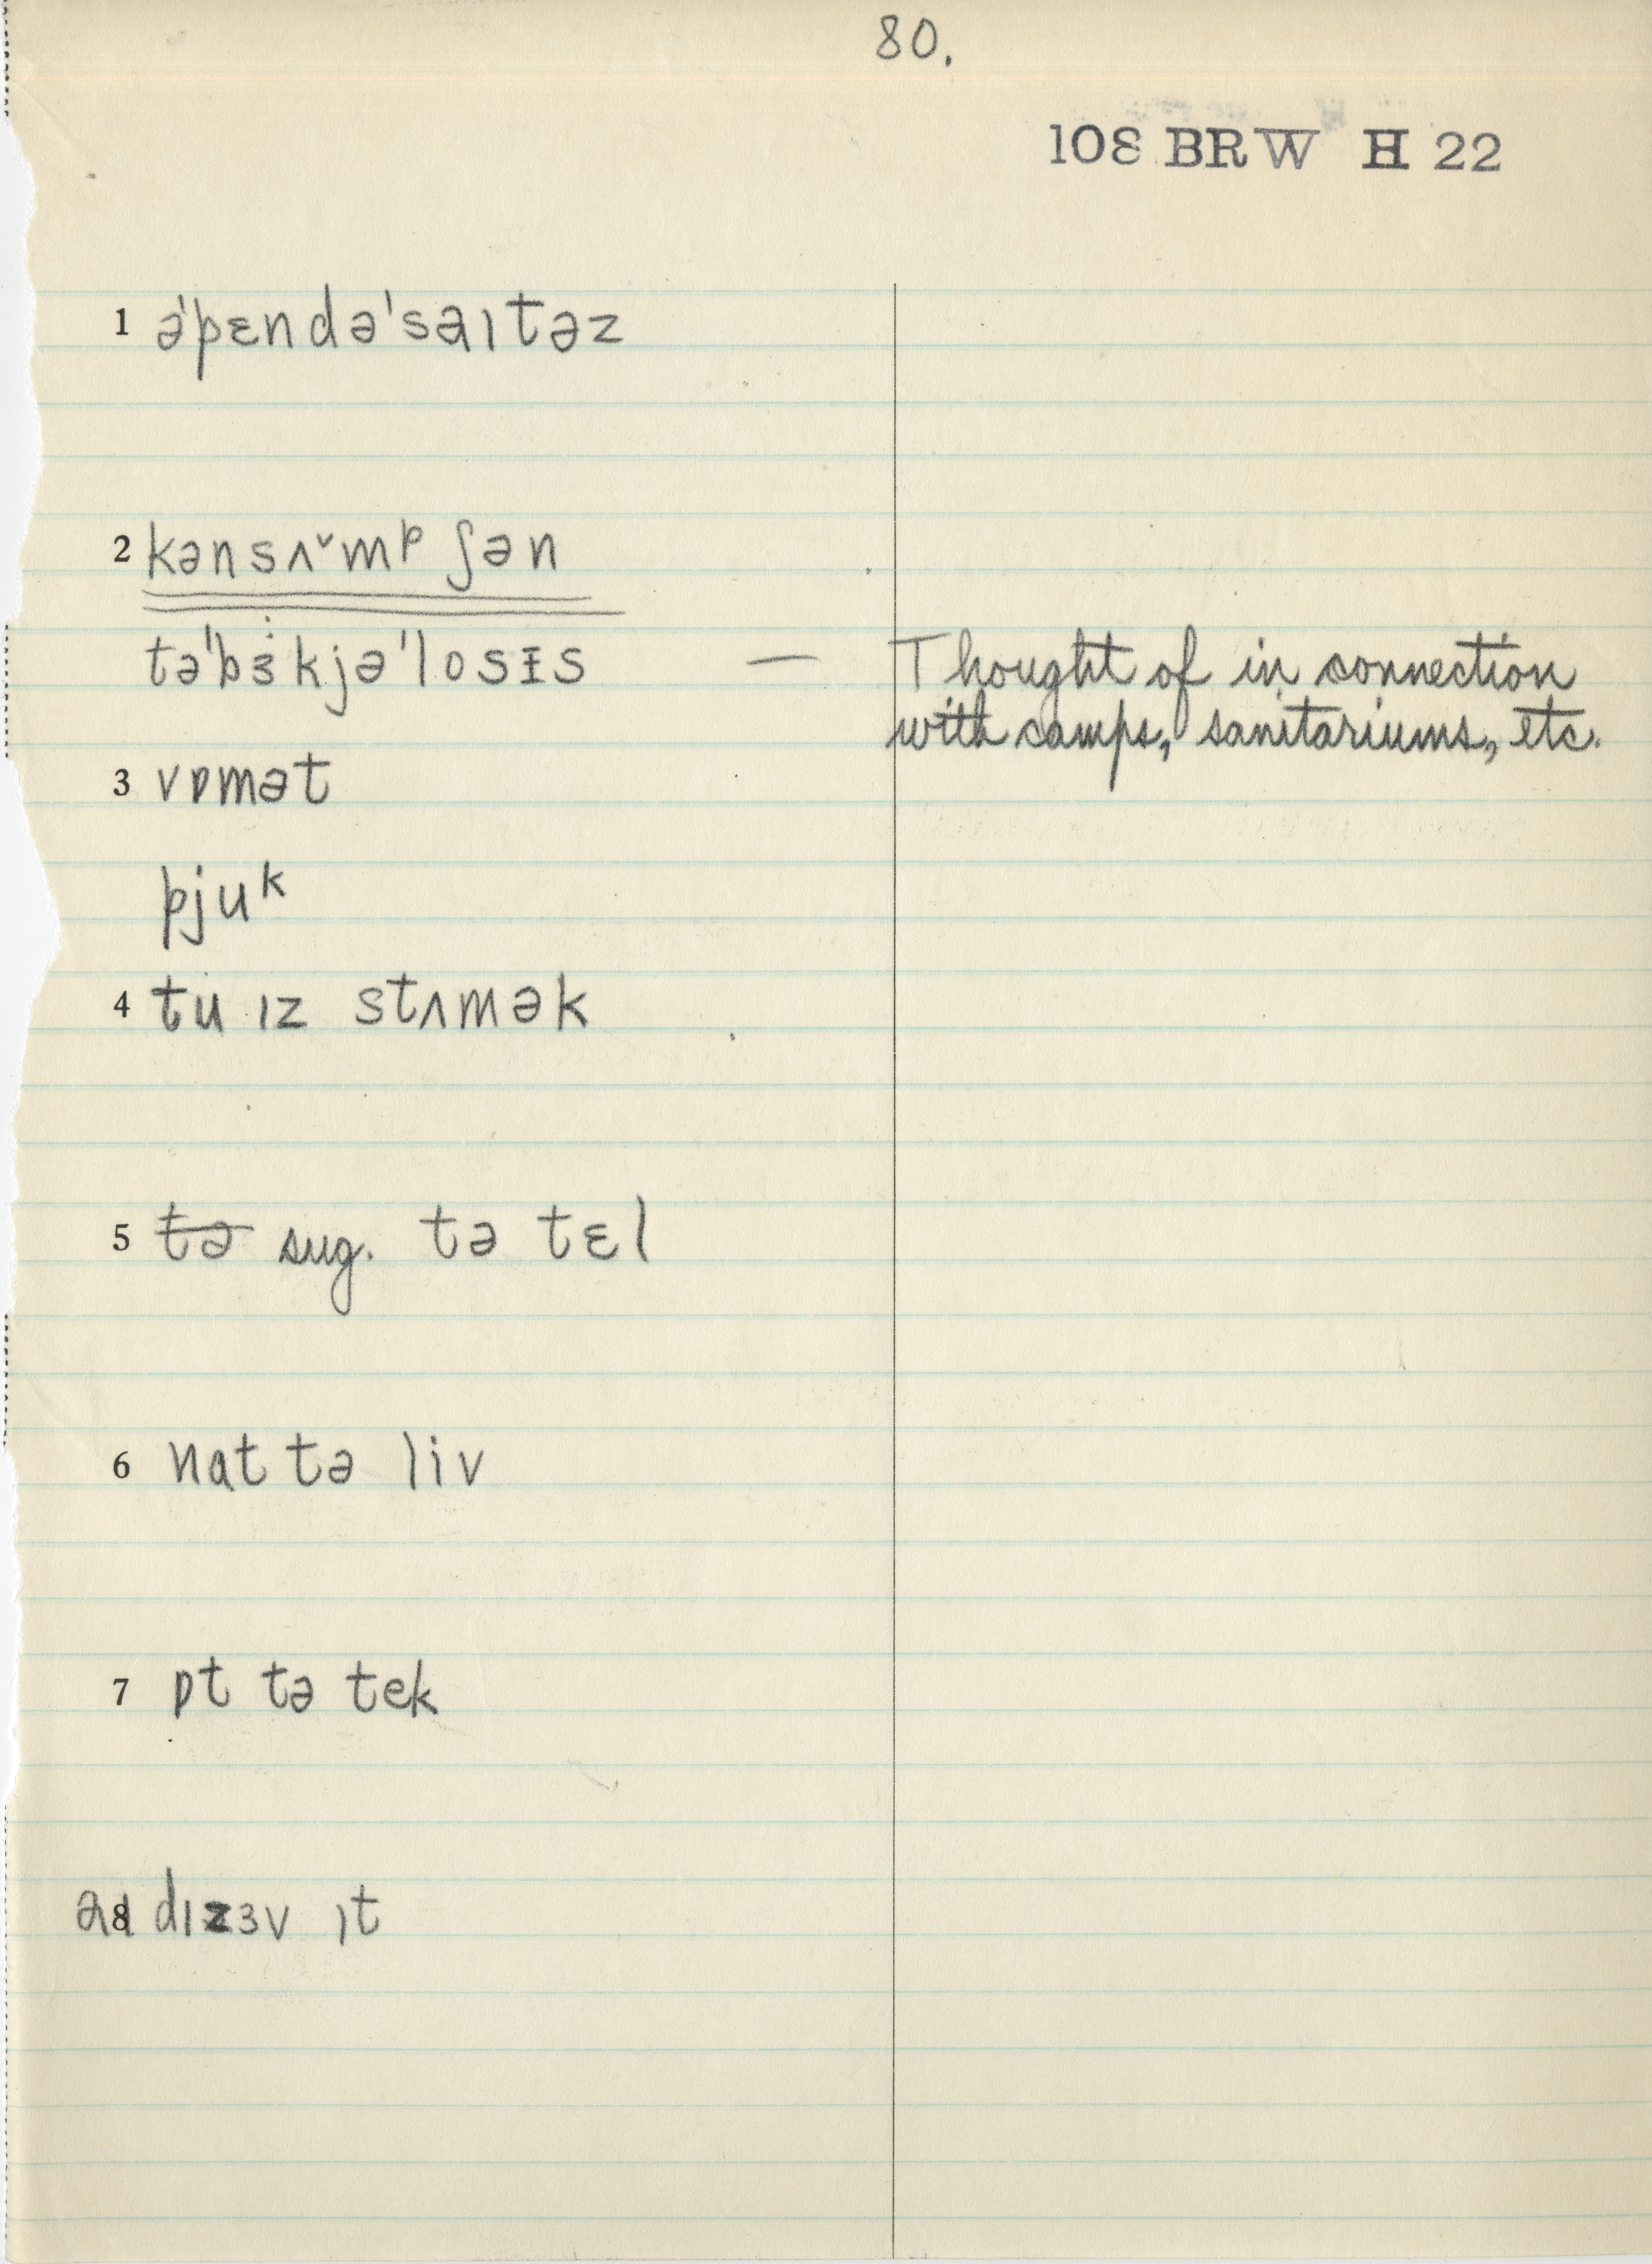 80.
108 BRW H 22
1 ə'pɛndə'saɪtəz
2 kənsʌ˅mᵖʃən
tə'bɜkjə'losɪs — Thought of in connection
with camps, sanitariums, etc.
3 vɒmət
pjuᵏ
4 tu ɪz stʌmək
5 tə sug. tə tɛl
6 nat tə liv
7 ɒt tə tek
8 dɪzɜv ɪt